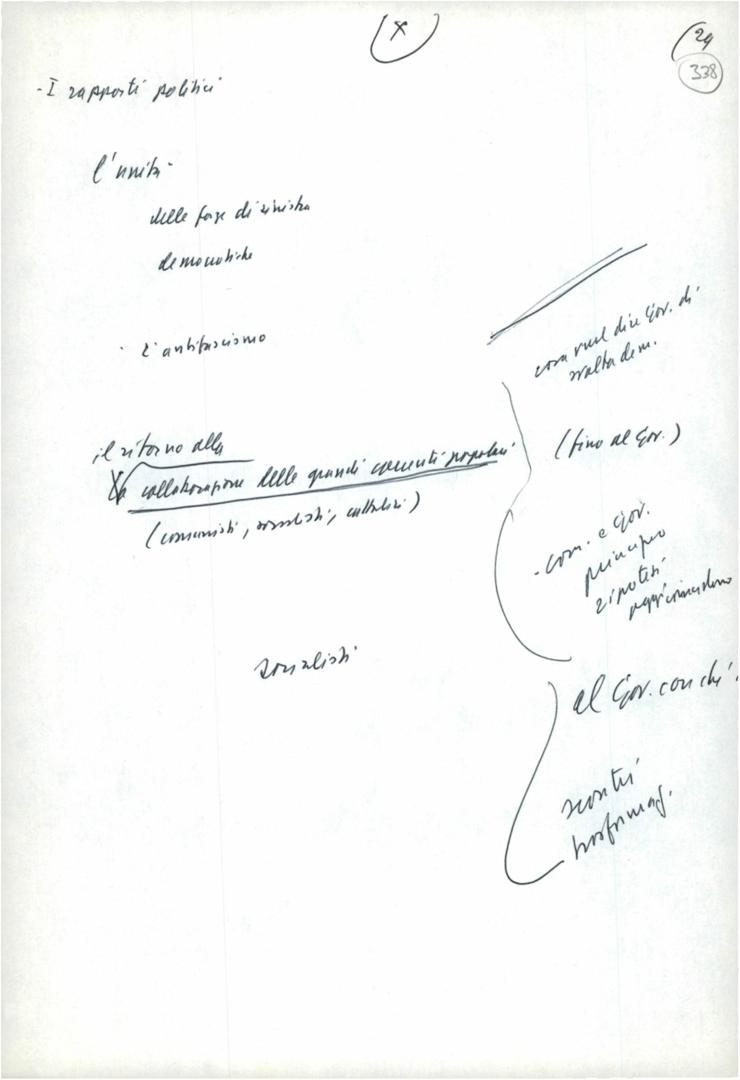 X
24
338
- I rapporti politici
l'unità
delle forze di sinistra
democratiche
- L'antifascismo
il ritorno alla
la collaborazione delle grandi correnti popolari
(comunisti, socialisti, cattolici)
socialisti
cosa vuol dire Gov. di
svolta dem.
(fino al Gov.)
- com. e Gov.
principio
ipotesi
al Gov. con chi.
scontri